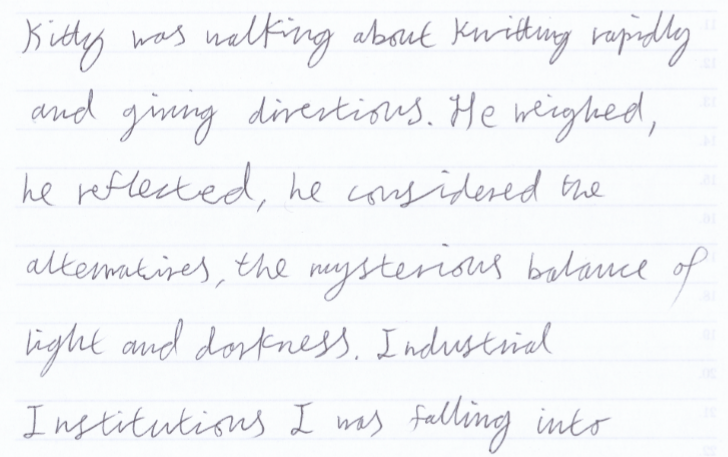 Kitty was walking about knitting rapidly
and giving directions. He weighed,
he reflected, he considered the
alternatives, the mysterious balance of
light and darkness. Industrial
Institutions I was falling into